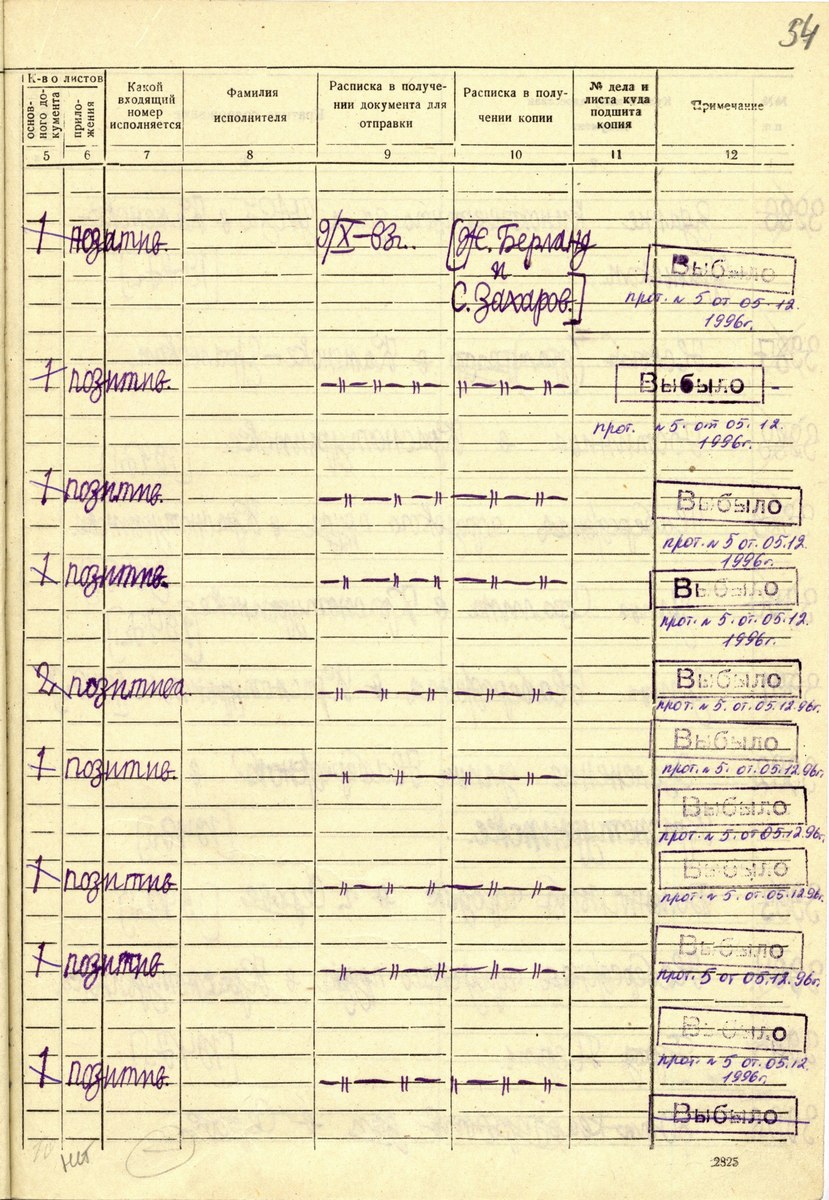 34
К-во листов
основ-
ного до-
кумента
прило-
жения
Какой
входящий
номер
исполняется
Фамилия
исполнителя
Расписка в получе-
нии документа для
отправки
Расписка в полу-
чении копии
№ дела и
листа куда
подшита
копия
Примечание
5 6 7 8 9 10 11 12
1 позитив. 9/X-83г. [Ж. Берланд
и
С. Захаров.]
Выбыло
прот. № 5 от 05.12.
1996г.
1 позитив. —〃—〃—〃— 〃—〃—〃— Выбыло
прот. № 5. от 05.12.
1996г.
1 позитив. —〃—〃—〃— —〃—〃— Выбыло
прот. № 5 от. 05.12.
1996г.
1 позитив. —〃—〃—〃— —〃—〃— Выбыло
прот. № 5. от. 05.12.
1996г.
2 позитива. —〃—〃—〃— —〃—〃— Выбыло
прот. № 5. от. 05.12.96г.
Выбыло
1 позитив. —〃—〃— —〃—〃—〃— прот. № 5. от. 05.12.96г.
Выбыло
прот. № 5 от 05.12.96г.
Выбыло
1 позитив. —〃—〃—〃— —〃—〃— прот. № 5. от. 05.12.96г.
Выбыло
1 позитив. 〃—〃—〃— —〃—〃—〃— прот. 5 от 05.12.96г.
Выбыло
прот. № 5 от. 05.12.
1996г.
1 позитив. —〃—〃—〃— 〃—〃—〃— 
Выбыло
10 нет
2825